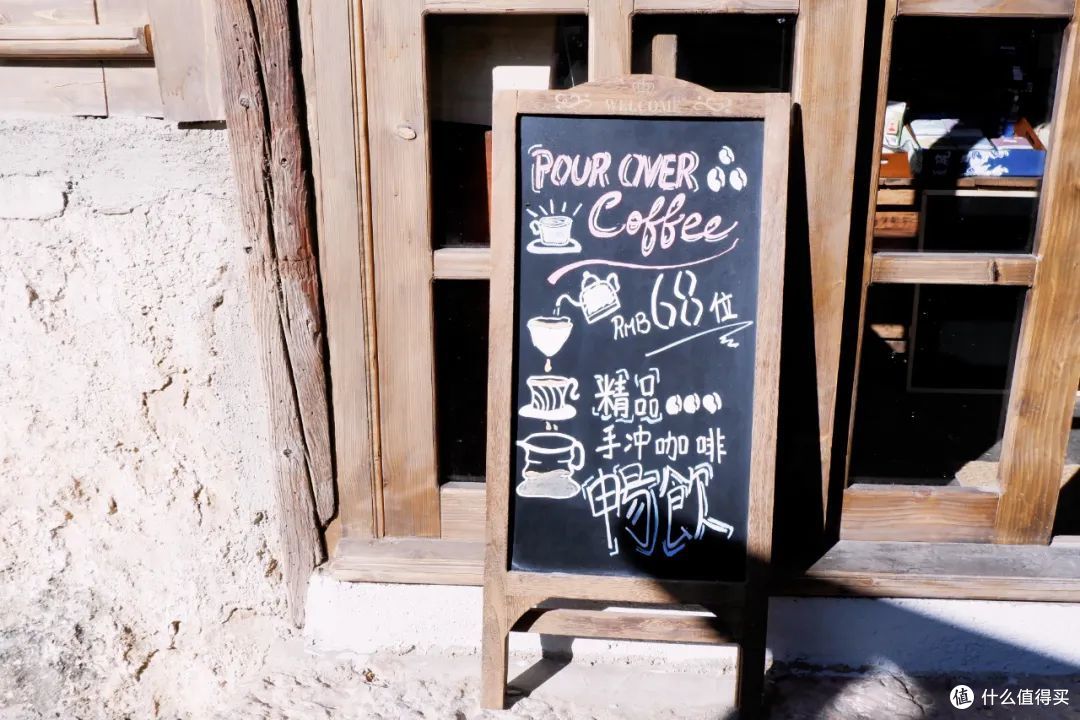 WELCOME
POUR OVER
Coffee
RMB 68 位
精品
手冲咖啡
暢飲
值 什么值得买